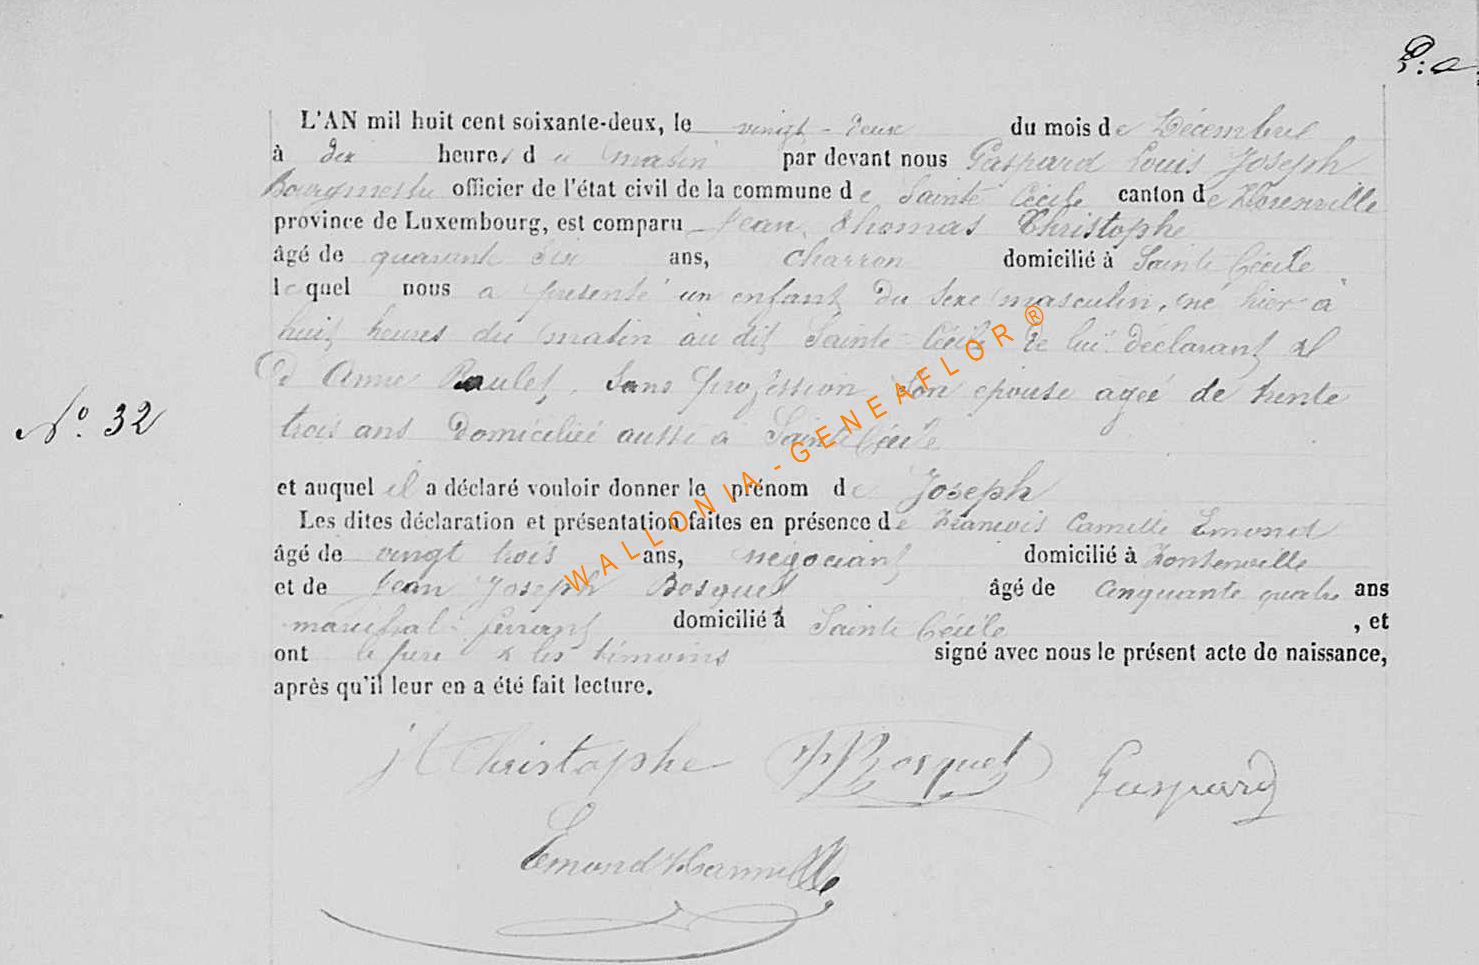 P: a
L'AN mil huit cent soixante-deux, le vingt-deux du mois de Décembre
à dix heures du matin par devant nous Gaspard Louis Joseph
Bourgmestre officier de l'état civil de la commune de Sainte Cécile canton de Florenville
province de Luxembourg, est comparu Jean Thomas Christophe
âgé de quarante six ans, charron domicilié à Sainte Cécile
lequel nous a présenté un enfant du sexe masculin, né hier à
huit heures du matin au dit Sainte Cécile de lui déclarant et
d'Anne Paulet, sans profession son épouse agée de trente
trois ans domiciliée aussi à Sainte Cécile
N° 32
et auquel il a déclaré vouloir donner le prénom de Joseph
Les dites déclaration et présentation faites en présence de François Camille Emond
âgé de vingt trois ans, négociant domicilié à
et de Jean Joseph Bosquet âgé de cinquante quatre ans
maréchal ferrant domicilié à Sainte Cécile , et
ont le père & les témoins signé avec nous le présent acte de naissance,
après qu'il leur en a été fait lecture.
jt Christophe JJ Bosquet Gaspard
Emond Camille
WALLONIA-GENEAFLOR®